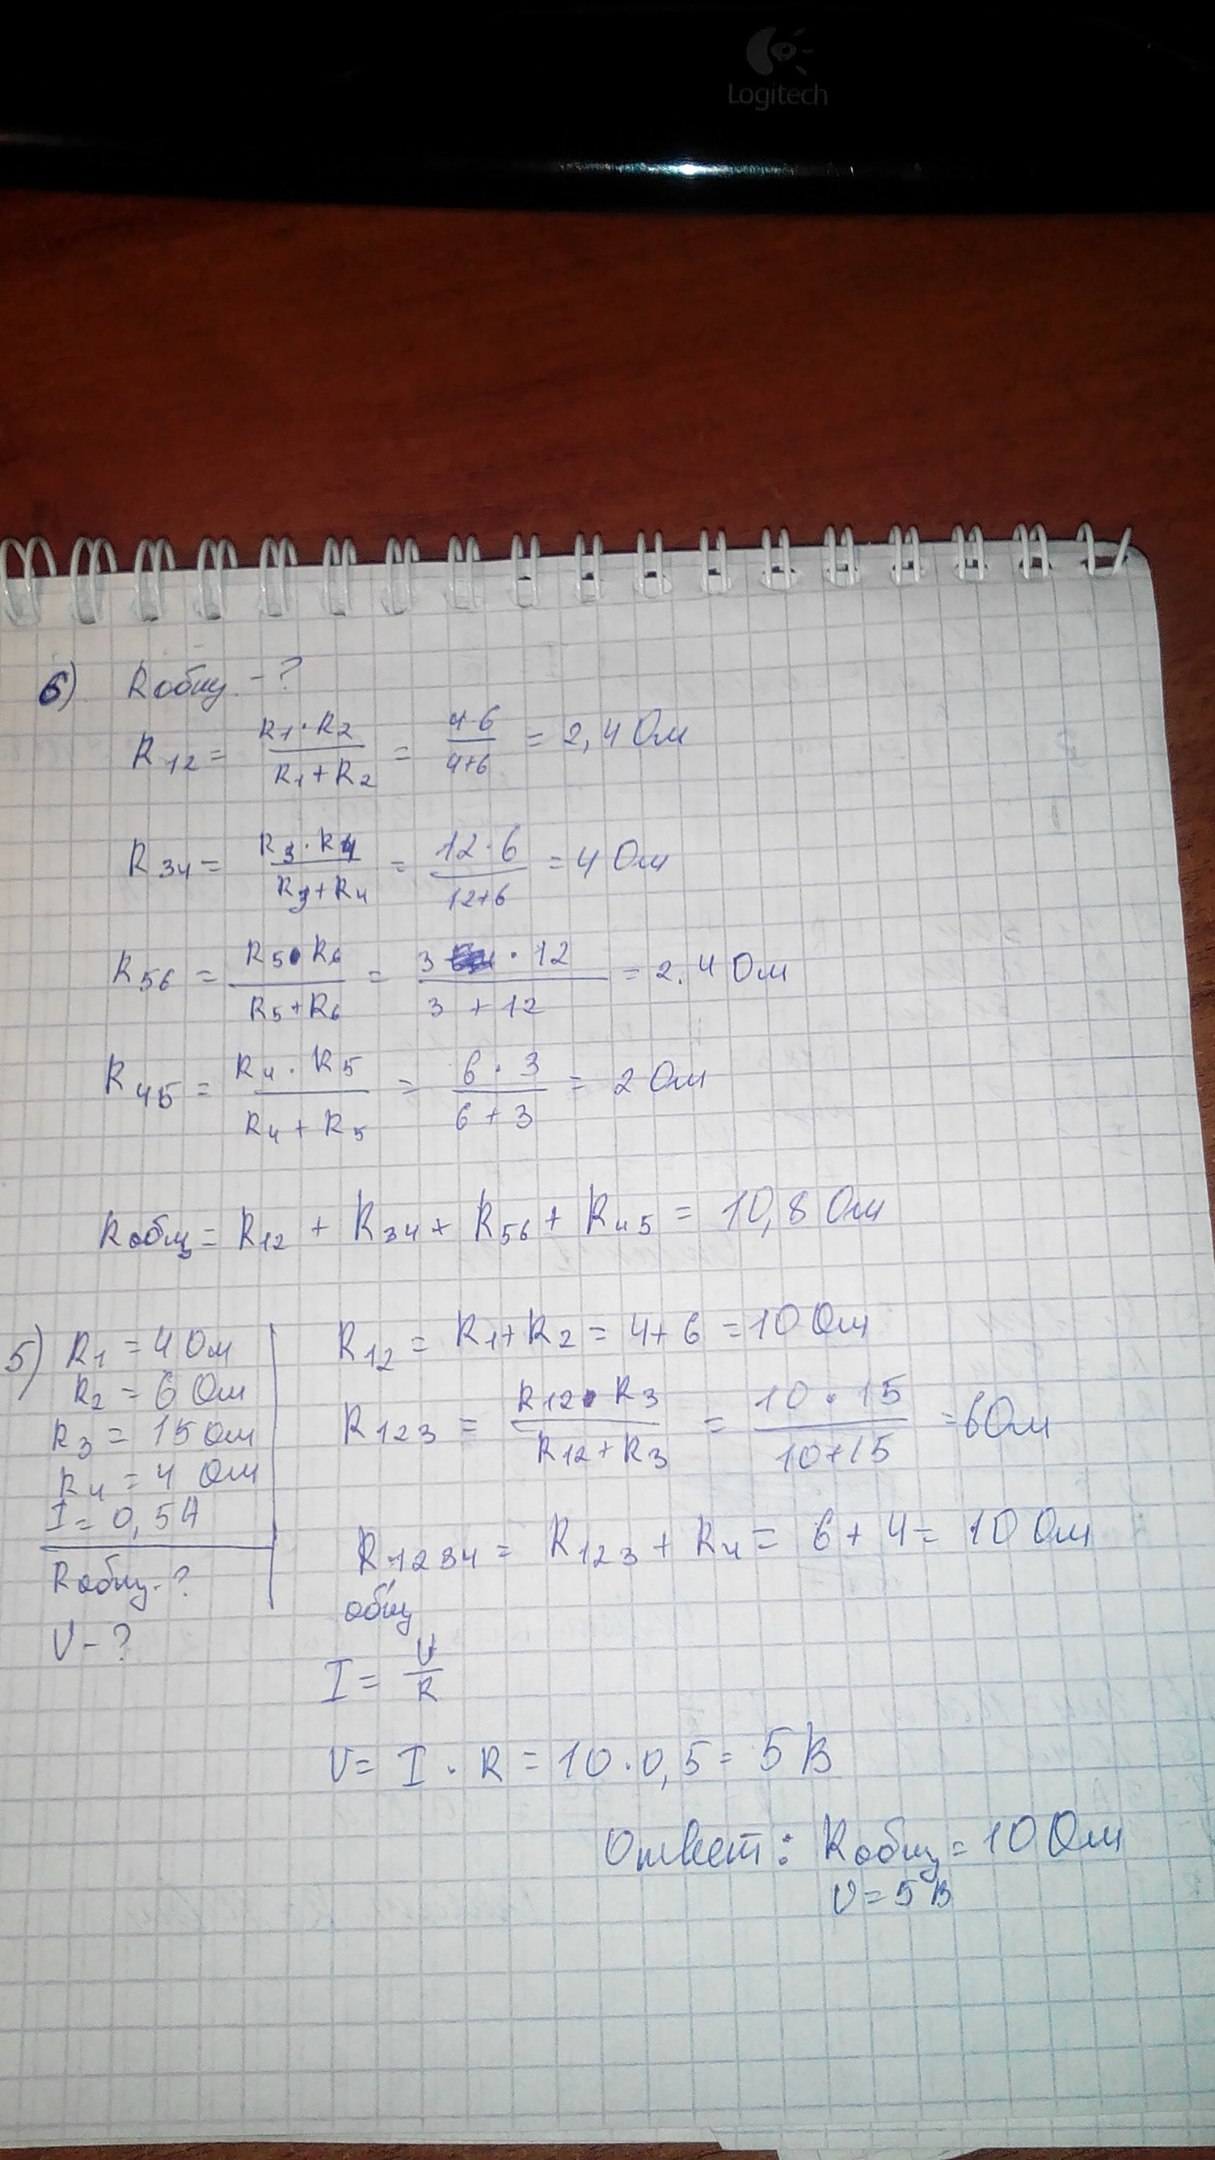 Logitech
6) Rобщ. - ?
R12 = R1·R2 / R1+R2 = 4·6 / 4+6 = 2,4 Ом
R34 = R3·R4 / R3+R4 = 12·6 / 12+6 = 4 Ом
R56 = R5·R6 / R5+R6 = 3 · 12 / 3 + 12 = 2.4 Ом
R45 = R4·R5 / R4+R5 = 6·3 / 6+3 = 2 Ом
Rобщ = R12 + R34 + R56 + R45 = 10,8 Ом
5) R1 = 4 Ом
R2 = 6 Ом
R3 = 15 Ом
R4 = 4 Ом
I = 0,5А
Rобщ - ?
U - ?
R12 = R1+R2 = 4+6 = 10 Ом
R123 = R12·R3 / R12+R3 = 10·15 / 10+15 = 6Ом
R1234 = R123 + R4 = 6+4 = 10 Ом
общ
I = U / R
U = I · R = 10·0,5 = 5 В
Ответ: Rобщ = 10 Ом
U = 5 В